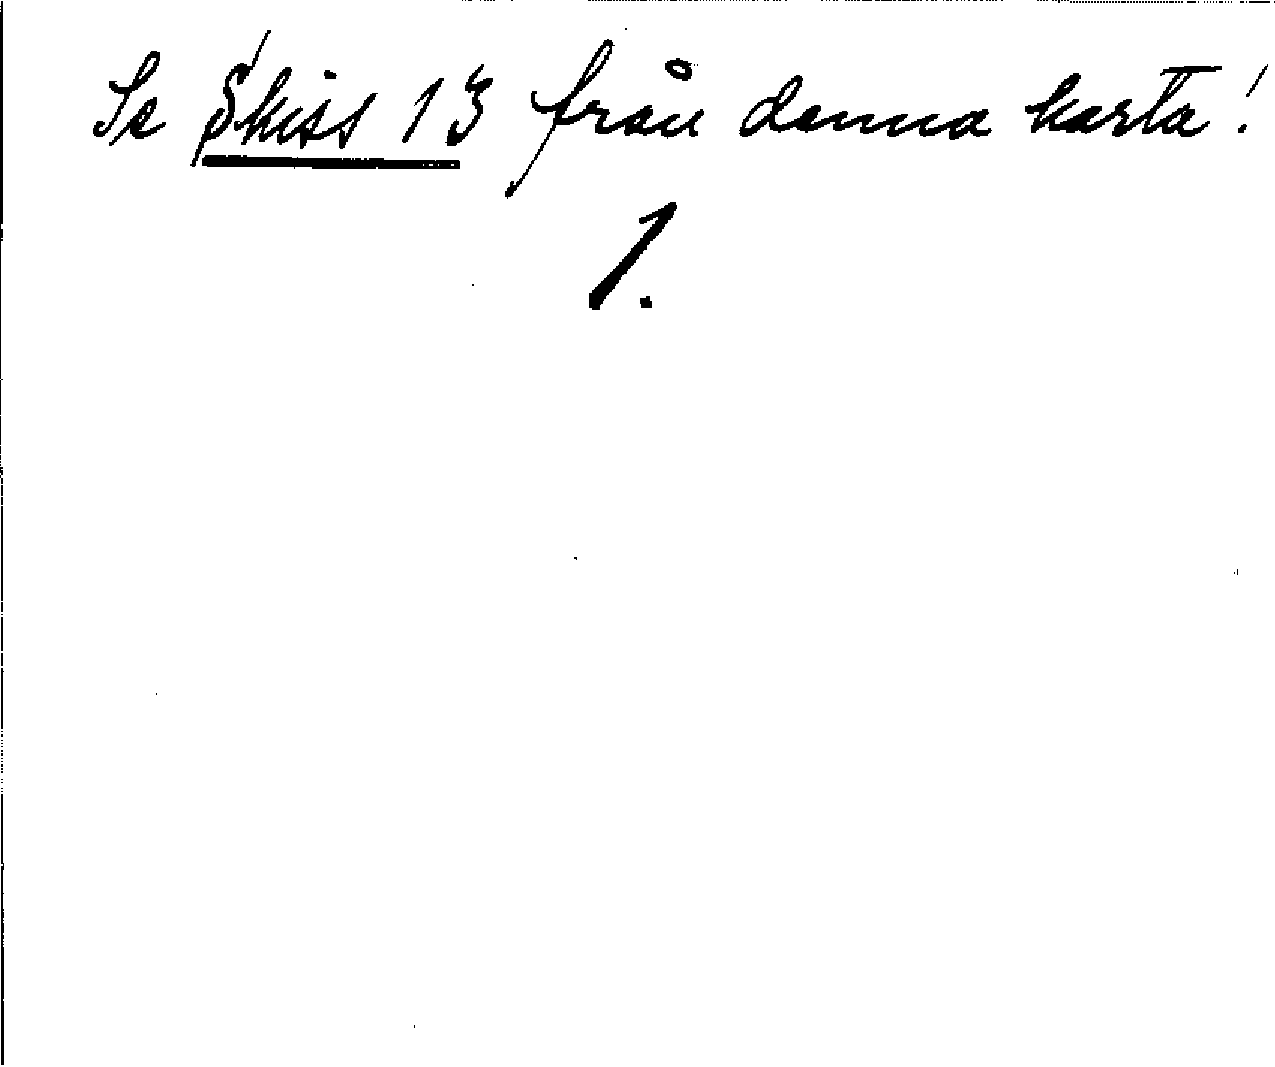 Se Skiss 13 från denna karta!
1.